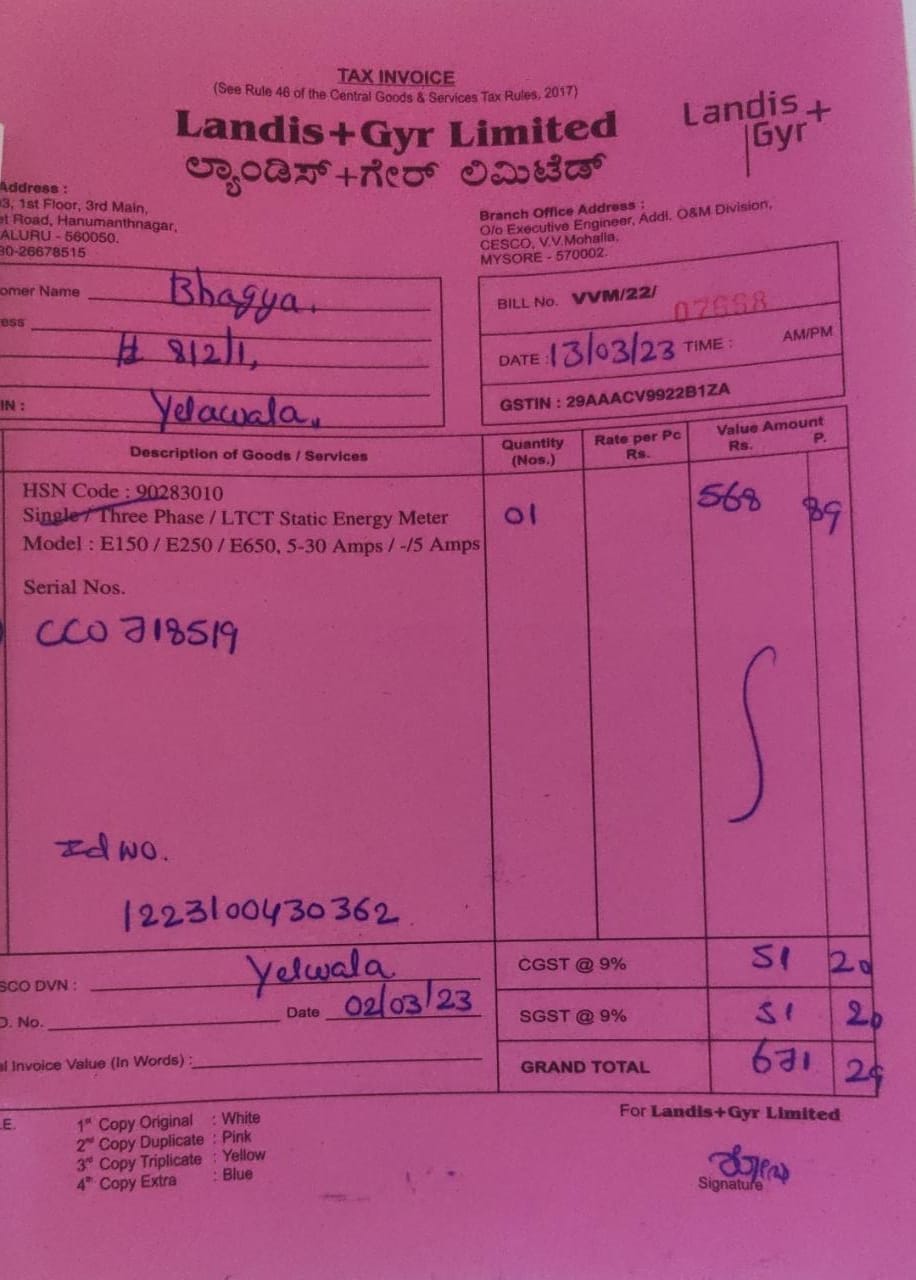 TAX INVOICE
(See Rule 46 of the Central Goods & Services Tax Rules, 2017)
Landis+Gyr Limited
ಲ್ಯಾಂಡಿಸ್+ಗೇರ್ ಲಿಮಿಟೆಡ್
Landis+
Gyr
Address :
3, 1st Floor, 3rd Main,
et Road, Hanumanthnagar,
ALURU - 560050.
80-26678515
Branch Office Address :
O/o Executive Engineer, Addl. O&M Division,
CESCO, V.V.Mohalla,
MYSORE - 570002.
omer Name Bhagya,
ess # 812/1,
IN : Yelawala,
BILL No. VVM/22/ 07668
DATE : 13/03/23 TIME : AM/PM
GSTIN : 29AAACV9922B1ZA
Description of Goods / Services
Quantity (Nos.)
Rate per Pc Rs.
Value Amount Rs. P.
HSN Code : 90283010
Single / Three Phase / LTCT Static Energy Meter 01 568 89
Model : E150 / E250 / E650, 5-30 Amps / -/5 Amps
Serial Nos.
CCO 718519
Id NO.
1223100430362
SCO DVN : Yelwala
O. No. Date 02/03/23
al Invoice Value (In Words) :
CGST @ 9% 51 20
SGST @ 9% 51 20
GRAND TOTAL 671 29
.E.
1st Copy Original : White
2nd Copy Duplicate : Pink
3rd Copy Triplicate : Yellow
4th Copy Extra : Blue
For Landis+Gyr Limited
Signature